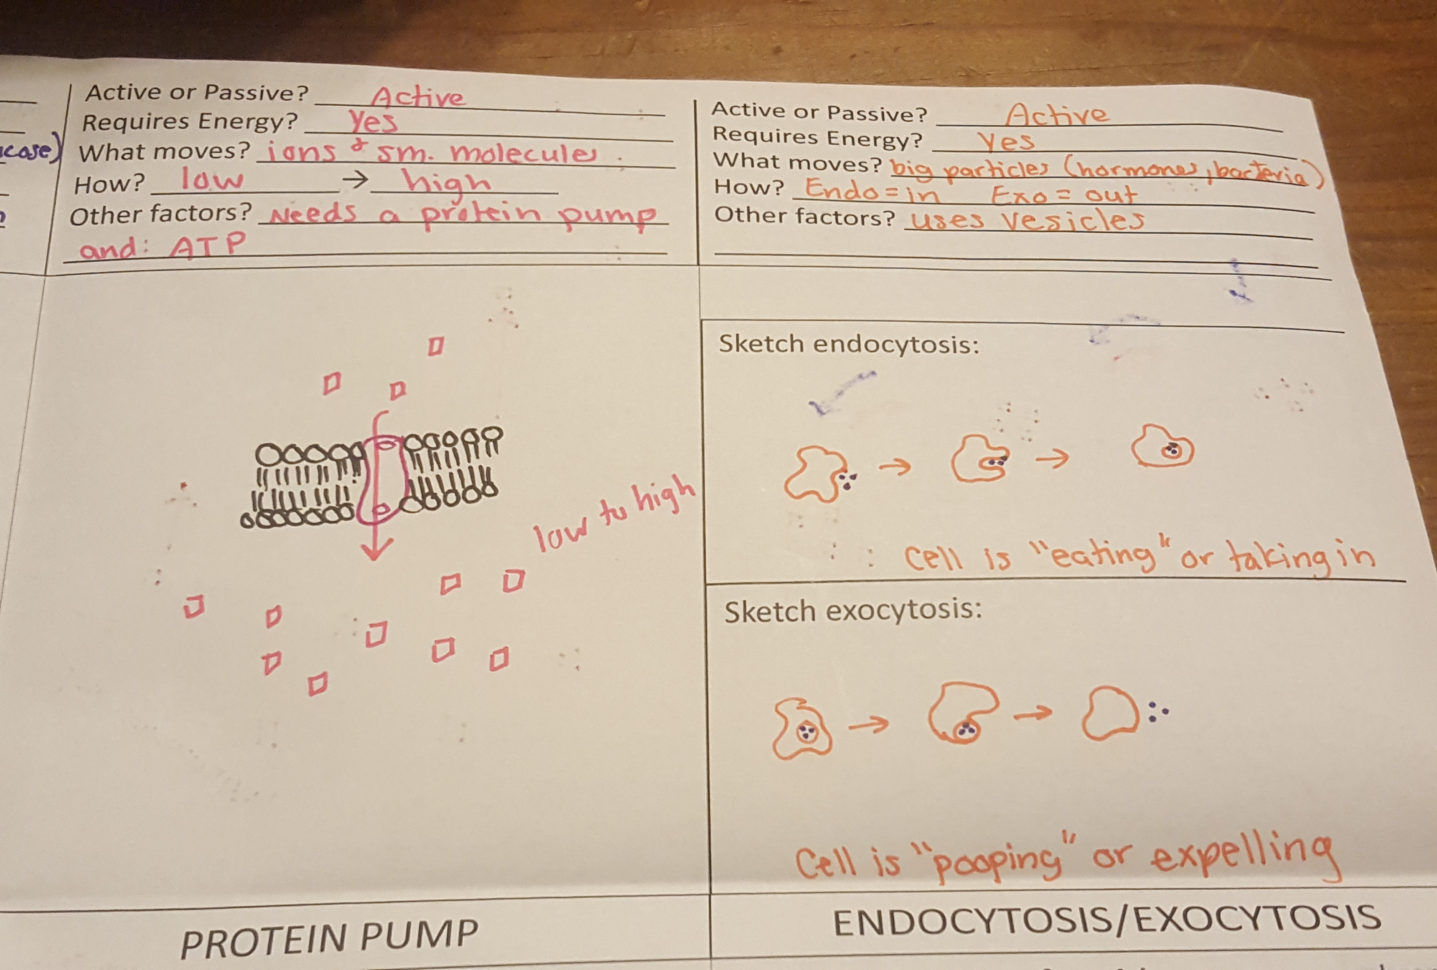 Active or Passive? Active
Requires Energy? Yes
case) What moves? ions & sm. molecules.
How? low → high
Other factors? Needs a protein pump
and: ATP
low to high
PROTEIN PUMP
Active or Passive? Active
Requires Energy? Yes
What moves? big particles (hormones, bacteria)
How? Endo = in Exo = out
Other factors? uses vesicles
Sketch endocytosis:
→ →
: cell is "eating" or taking in
Sketch exocytosis:
→ →
Cell is "pooping" or expelling
ENDOCYTOSIS/EXOCYTOSIS